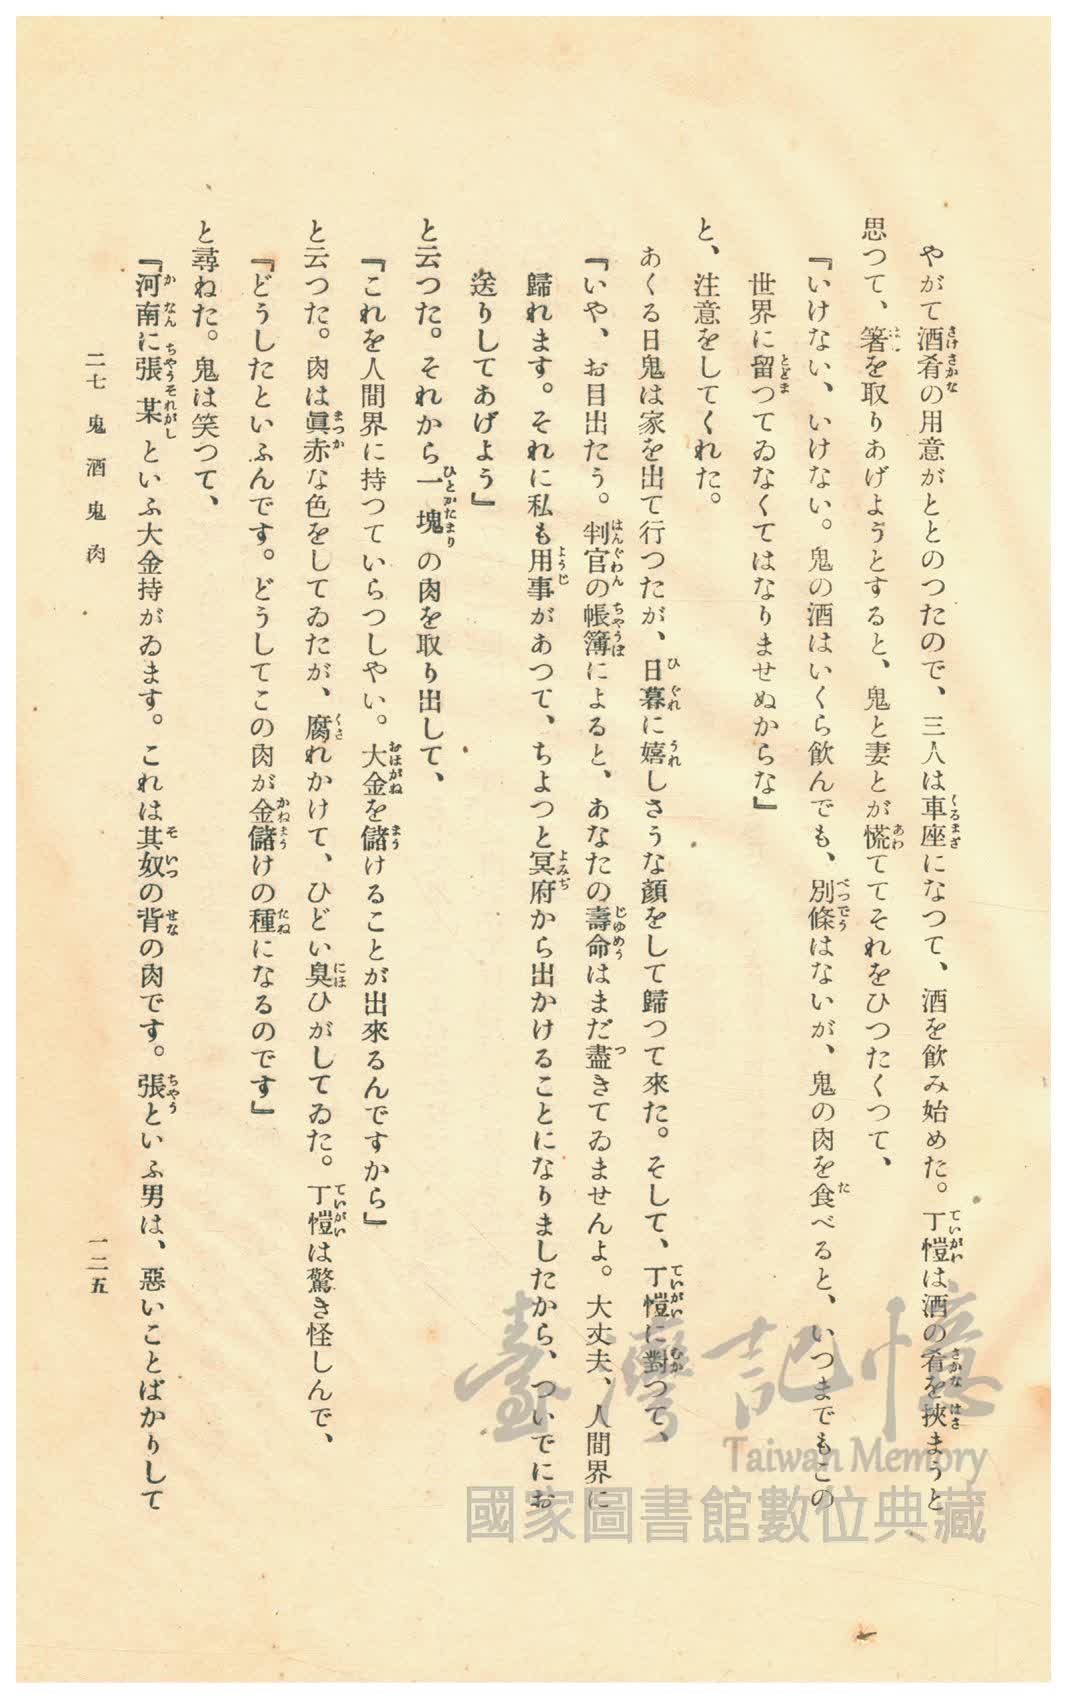 やがて酒肴の用意がととのつたので、三人は車座になつて、酒を飲み始めた。丁愷は酒の肴を挾まうと
思つて、箸を取りあげようとすると、鬼と妻とが慌ててそれをひつたくつて、
『いけない、いけない。鬼の酒はいくら飲んでも、別條はないが、鬼の肉を食べると、いつまでもこの
世界に留つてゐなくてはなりませぬからな』
と、注意をしてくれた。
あくる日鬼は家を出て行つたが、日暮に嬉しさうな顔をして歸つて來た。そして、丁愷に對つて、
『いや、お目出たう。判官の帳簿によると、あなたの壽命はまだ盡きてゐませんよ。大丈夫、人間界に
歸れます。それに私も用事があつて、ちよつと冥府から出かけることになりましたから、ついでにお
送りしてあげよう』
と云つた。それから一塊の肉を取り出して、
『これを人間界に持つていらつしやい。大金を儲けることが出來るんですから』
と云つた。肉は眞赤な色をしてゐたが、腐れかけて、ひどい臭ひがしてゐた。丁愷は驚き怪しんで、
『どうしたといふんです。どうしてこの肉が金儲けの種になるのです』
と尋ねた。鬼は笑つて、
『河南に張某といふ大金持がゐます。これは其奴の背の肉です。張といふ男は、惡いことばかりして
二七 鬼酒鬼肉
一二五
臺灣記憶
Taiwan Memory
國家圖書館數位典藏